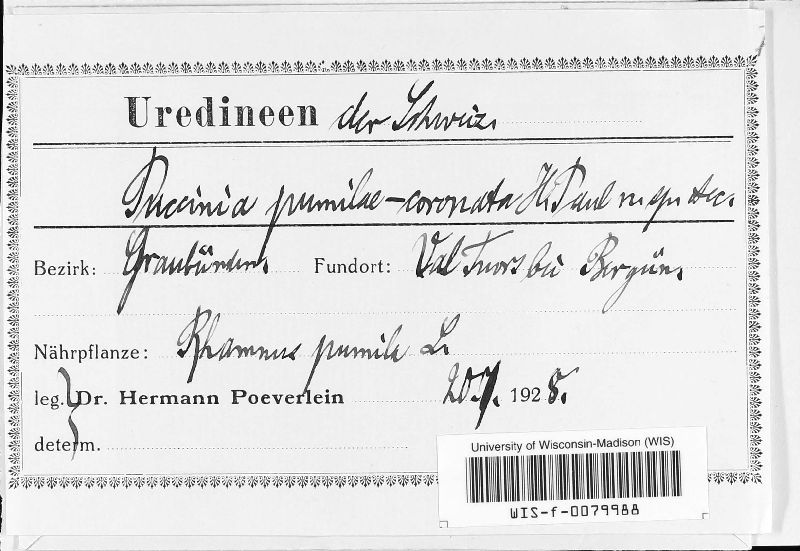 Uredineen der Schweiz.
Puccinia pumilae-coronata H. Paul n. sp.
Bezirk: Graubünden. Fundort: Val Tuors bei Bergün.
Nährpflanze: Rhamnus pumila L.
leg. Dr. Hermann Poeverlein 20.7. 1928.
determ.
University of Wisconsin-Madison (WIS)
WIS-f-0079988